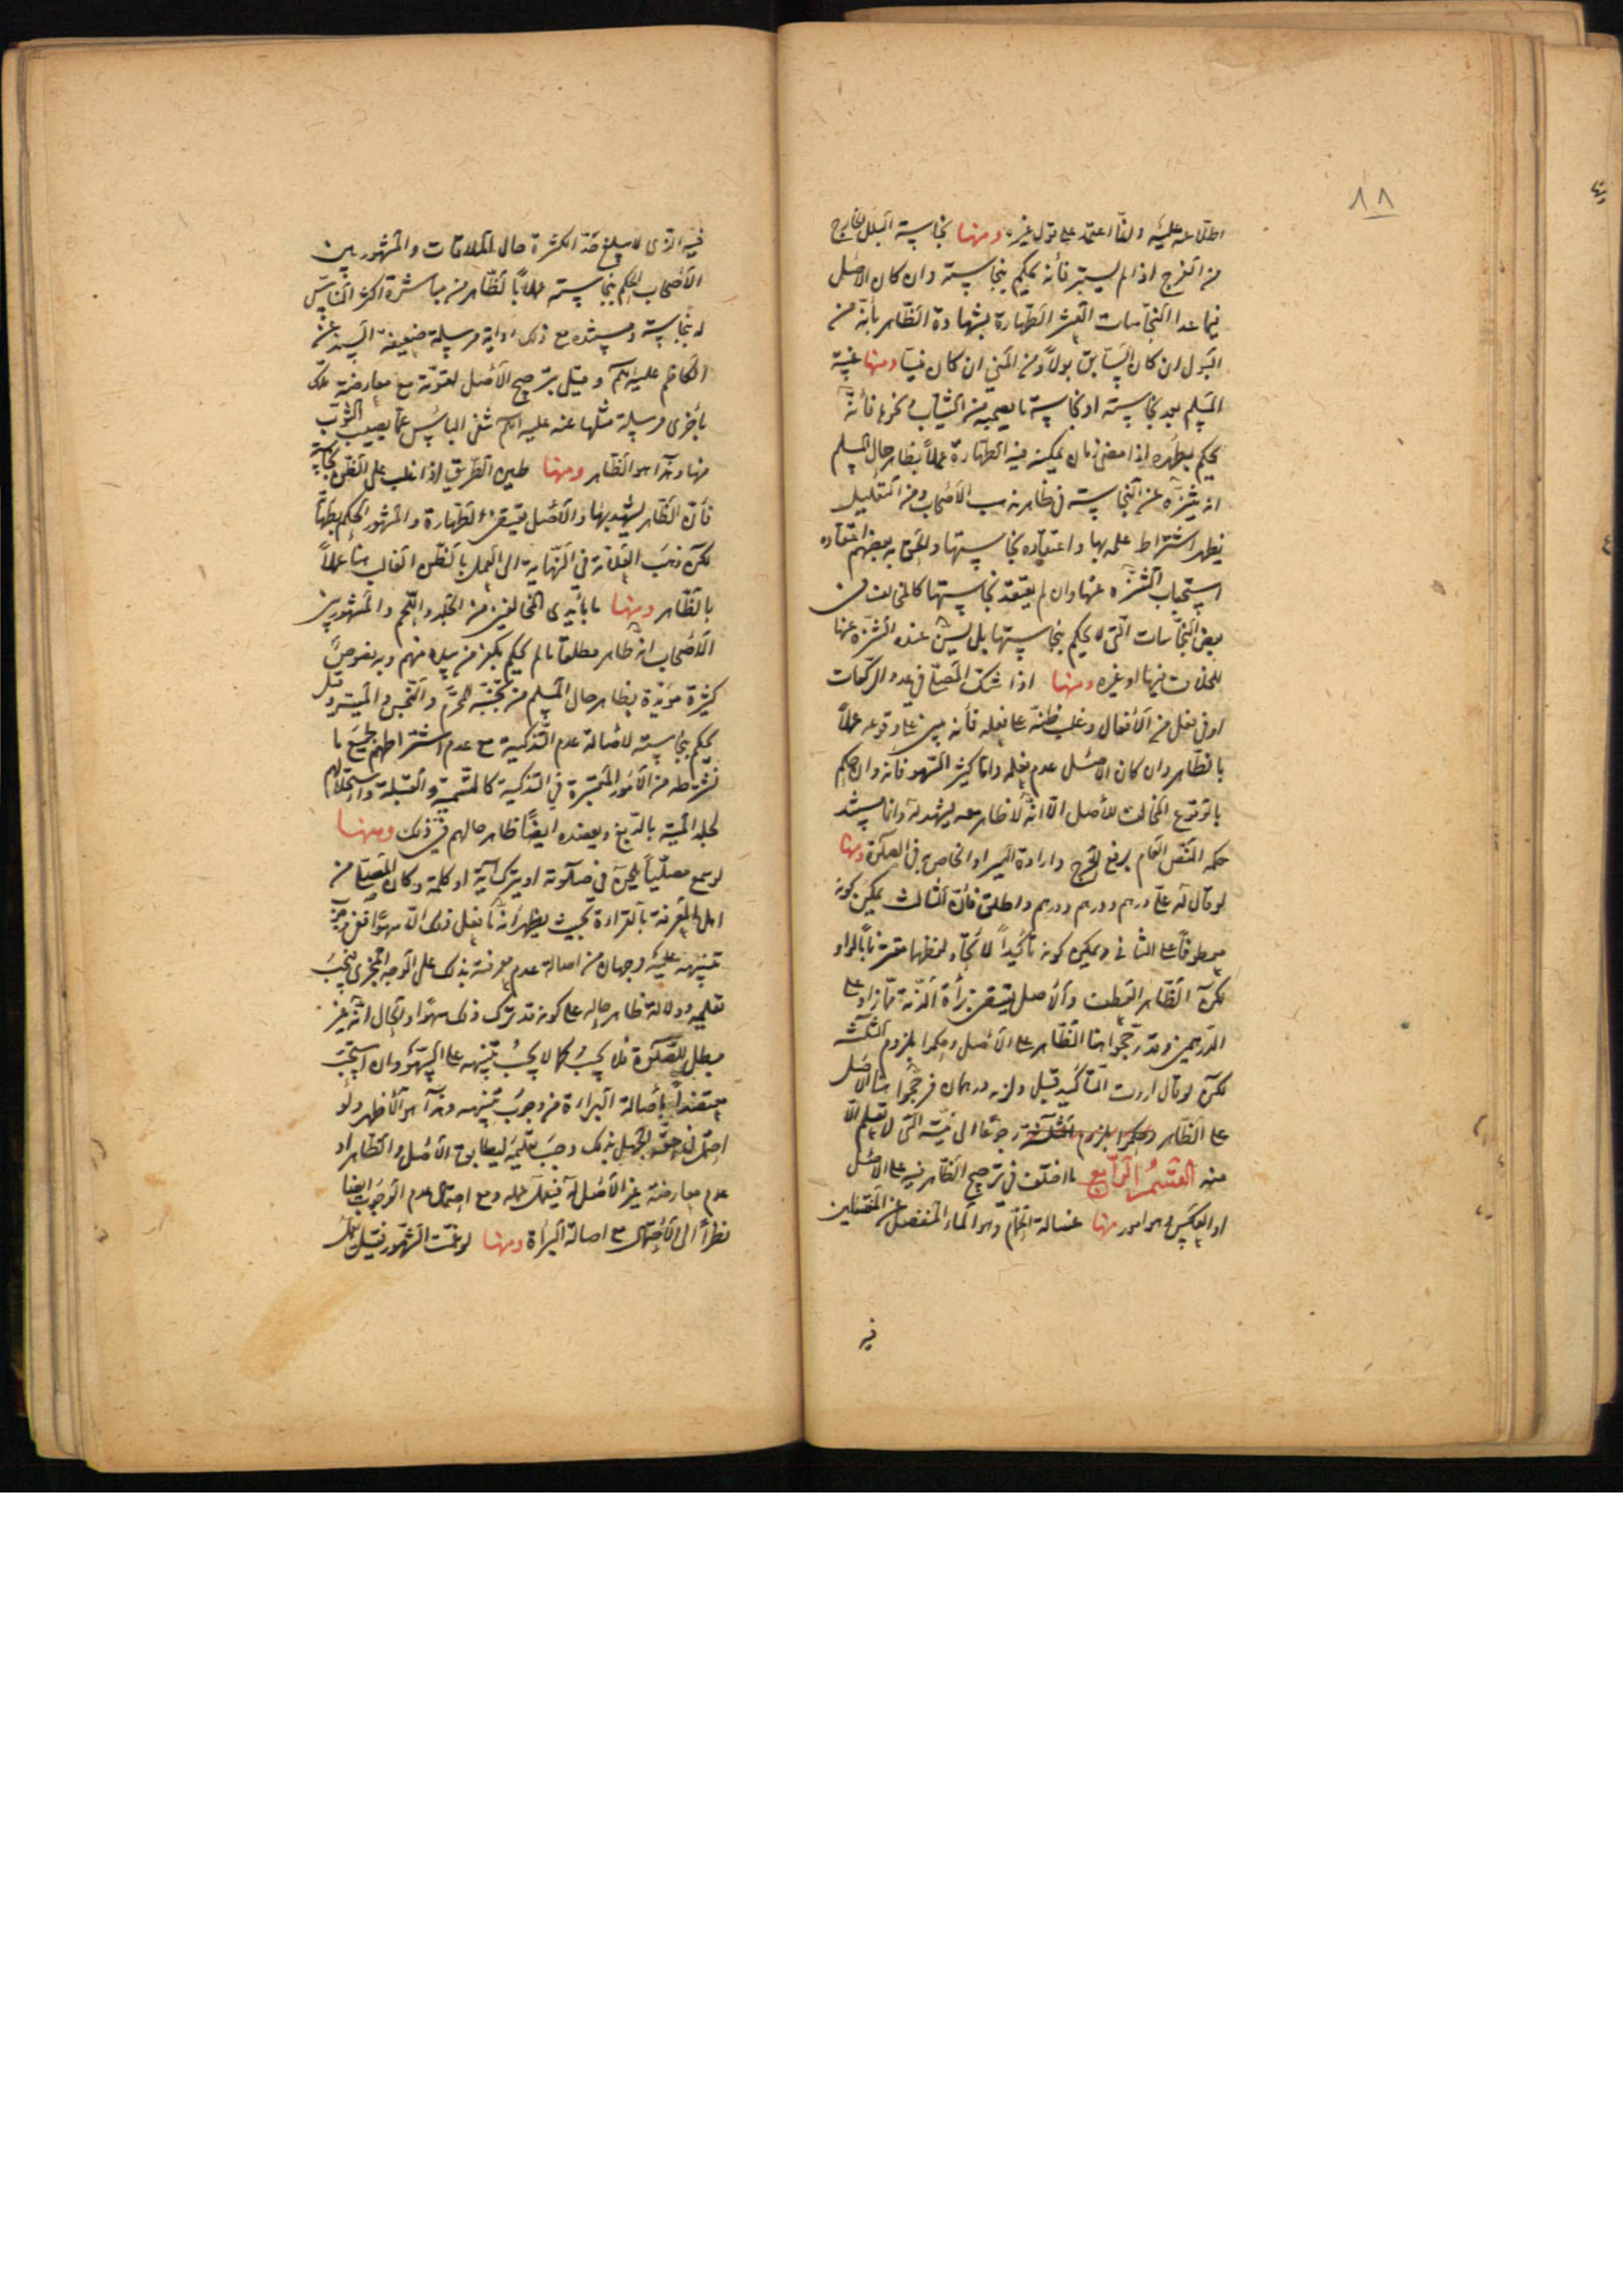 ٨٨
اطلاعه عليه والفا اعتمد على قول غيره ومنها نجاسة البلل الخارج
من الفرج اذا لم يستبر فانه يحكم بنجاسته وان كان الاصل
فيما عدا النجاسات العشر الطهارة لشهادة الظاهر بأنه من
البول ان كان السابق بولا ومن المني ان كان منيا ومنها غيبة
المسلم بعد نجاسته او نجاسة ما يصحبه من الثياب ونحوه فانه
يحكم بطهره اذا مضى زمان يمكنه فيه الطهارة عملا بظاهر حال المسلم
انه يتنزه عن النجاسة في ظاهر مذهب الاصحاب ومن التعليل
يظهر اشتراط علمه بها واعتقاده نجاستها والحق به بعضهم اعتقاده
استحباب التنزه عنها وان لم يعتقد نجاستها كالمخالف في
بعض النجاسات التي لا يحكم بنجاستها بل يسن عنده التنزه عنها
للخلاف فيها او غيره ومنها اذا شك المصلي في عدد الركعات
او في فعل من الافعال وغلب ظنه على فعله فانه يبني على وقوعه عملا
بالظاهر وان كان الاصل عدم فعله واما كثير السهو فانه وان حكم
بالوقوع المخالف للاصل الا انه لا ظاهر معه يشهد له وانما مستند
حكمه النص العام برفع الحرج وارادة اليسر او الخاص في الصلوة ومنها
لو قال له علي درهم ودرهم ودرهم واطلق فان الثالث يمكن كونه
معطوفا على الثاني ويمكن كونه تأكيدا لاتحاد لفظهما مقترنا بالواو
لكن الظاهر العطف والاصل يقتضي برأة الذمة مما زاد على
الدرهمين وقد رجحوا هنا الظاهر على الاصل وحكموا بلزوم الثلثة
لكن لو قال اردت التأكيد قبل ولزمه درهمان فرجحوا هنا الاصل
على الظاهر وحكموا بلزوم الثلثة رجوعا الى نيته التي لا تعلم الا
منه القسم الرابع ما اختلف في ترجيح الظاهر فيه على الاصل
او العكس وهو امور منها غسالة الحمام وهو الماء المنفصل عن المغتسلين
فيه
فيه الذي لا يبلغ حد الكثرة حال الملاقات والمشهور بين
الاصحاب الحكم بنجاسته عملا بالظاهر من مباشرة اكثر الناس
له بنجاسة ومستنده مع ذلك رواية مرسلة ضعيفة السند عن
الكاظم عليه السلام وقيل بترجيح الاصل لقوته مع معارضة تلك
بأخرى مرسلة مثلها عنه عليه السلام بنفي الباس عما يصيب الثوب
منها وهذا هو الظاهر ومنها طين الطريق اذا غلب على الظن نجاسته
فان الظاهر يشهد بها والاصل يقتضي الطهارة والمشهور الحكم بطهارته
لكن ذهب العلامة في النهاية الى العمل بالظن الغالب هنا عملا
بالظاهر ومنها ما بأيدي المخالفين من الجلد واللحم والمشهور بين
الاصحاب انه طاهر مطلقا ما لم يحكم بكفر من بيده منهم وبه نصوص
كثيرة مؤيدة بظاهر حال المسلم من تجنبه المحرم والنجس والميتة وقيل
يحكم بنجاسته لاصالة عدم التذكية مع عدم اشتراطهم جميع ما
نشترطه من الامور المعتبرة في التذكية كالتسمية والقبلة واستحلالهم
لجلد الميتة بالدبغ ويعضده ايضا ظاهر حالهم في ذلك ومنها
لو سمع مصليا يلحن في صلوته او يترك آية او كلمة وكان المصلي من
اهل المعرفة بالقراءة بحيث يظهر انه ما فعل ذلك الا سهوا ففي وجوب
تنبيهه عليه وجهان من اصالة عدم معرفته بذلك على الوجه المجزي فيجب
تعليمه ودلالة ظاهر حاله على كونه قد ترك ذلك سهوا والحال انه غير
مبطل للصلوة فلا يجب كما لا يجب تنبيهه على السهو وان استحب
معتضدا باصالة البراءة من وجوب تنبيهه وهذا هو الاظهر ولو
احتمل في حقه الجهل بذلك وجب تعليمه لتطابق الاصل والظاهر او
عدم معارضة غير الاصل له فيعمل عمله ومع احتمال عدم الوجوب ايضا
نظرا الى الاحتمال مع اصالة البرأة ومنها لو غمت الشهور فقيل يعمل